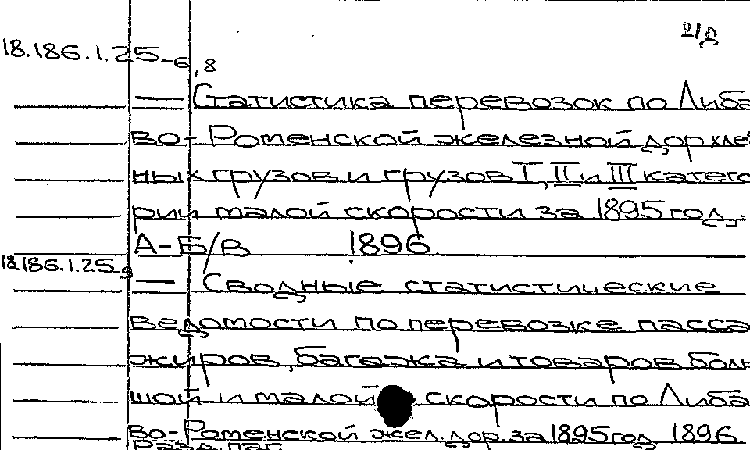 21д
18.186.1.25-6,8
— Статистика перевозок по Либа
во-Роменской железной дор хле
ных грузов и грузов I, II и III катего
рии малой скорости за 1895 год.
А-Б/В 1896
18.186.1.25-9
— Сводные статистические
ведомости по перевозке пасса
жиров, багажа и товаров боль
шой и малой скорости по Либа
во-Роменской жел. дор. за 1895 год 1896